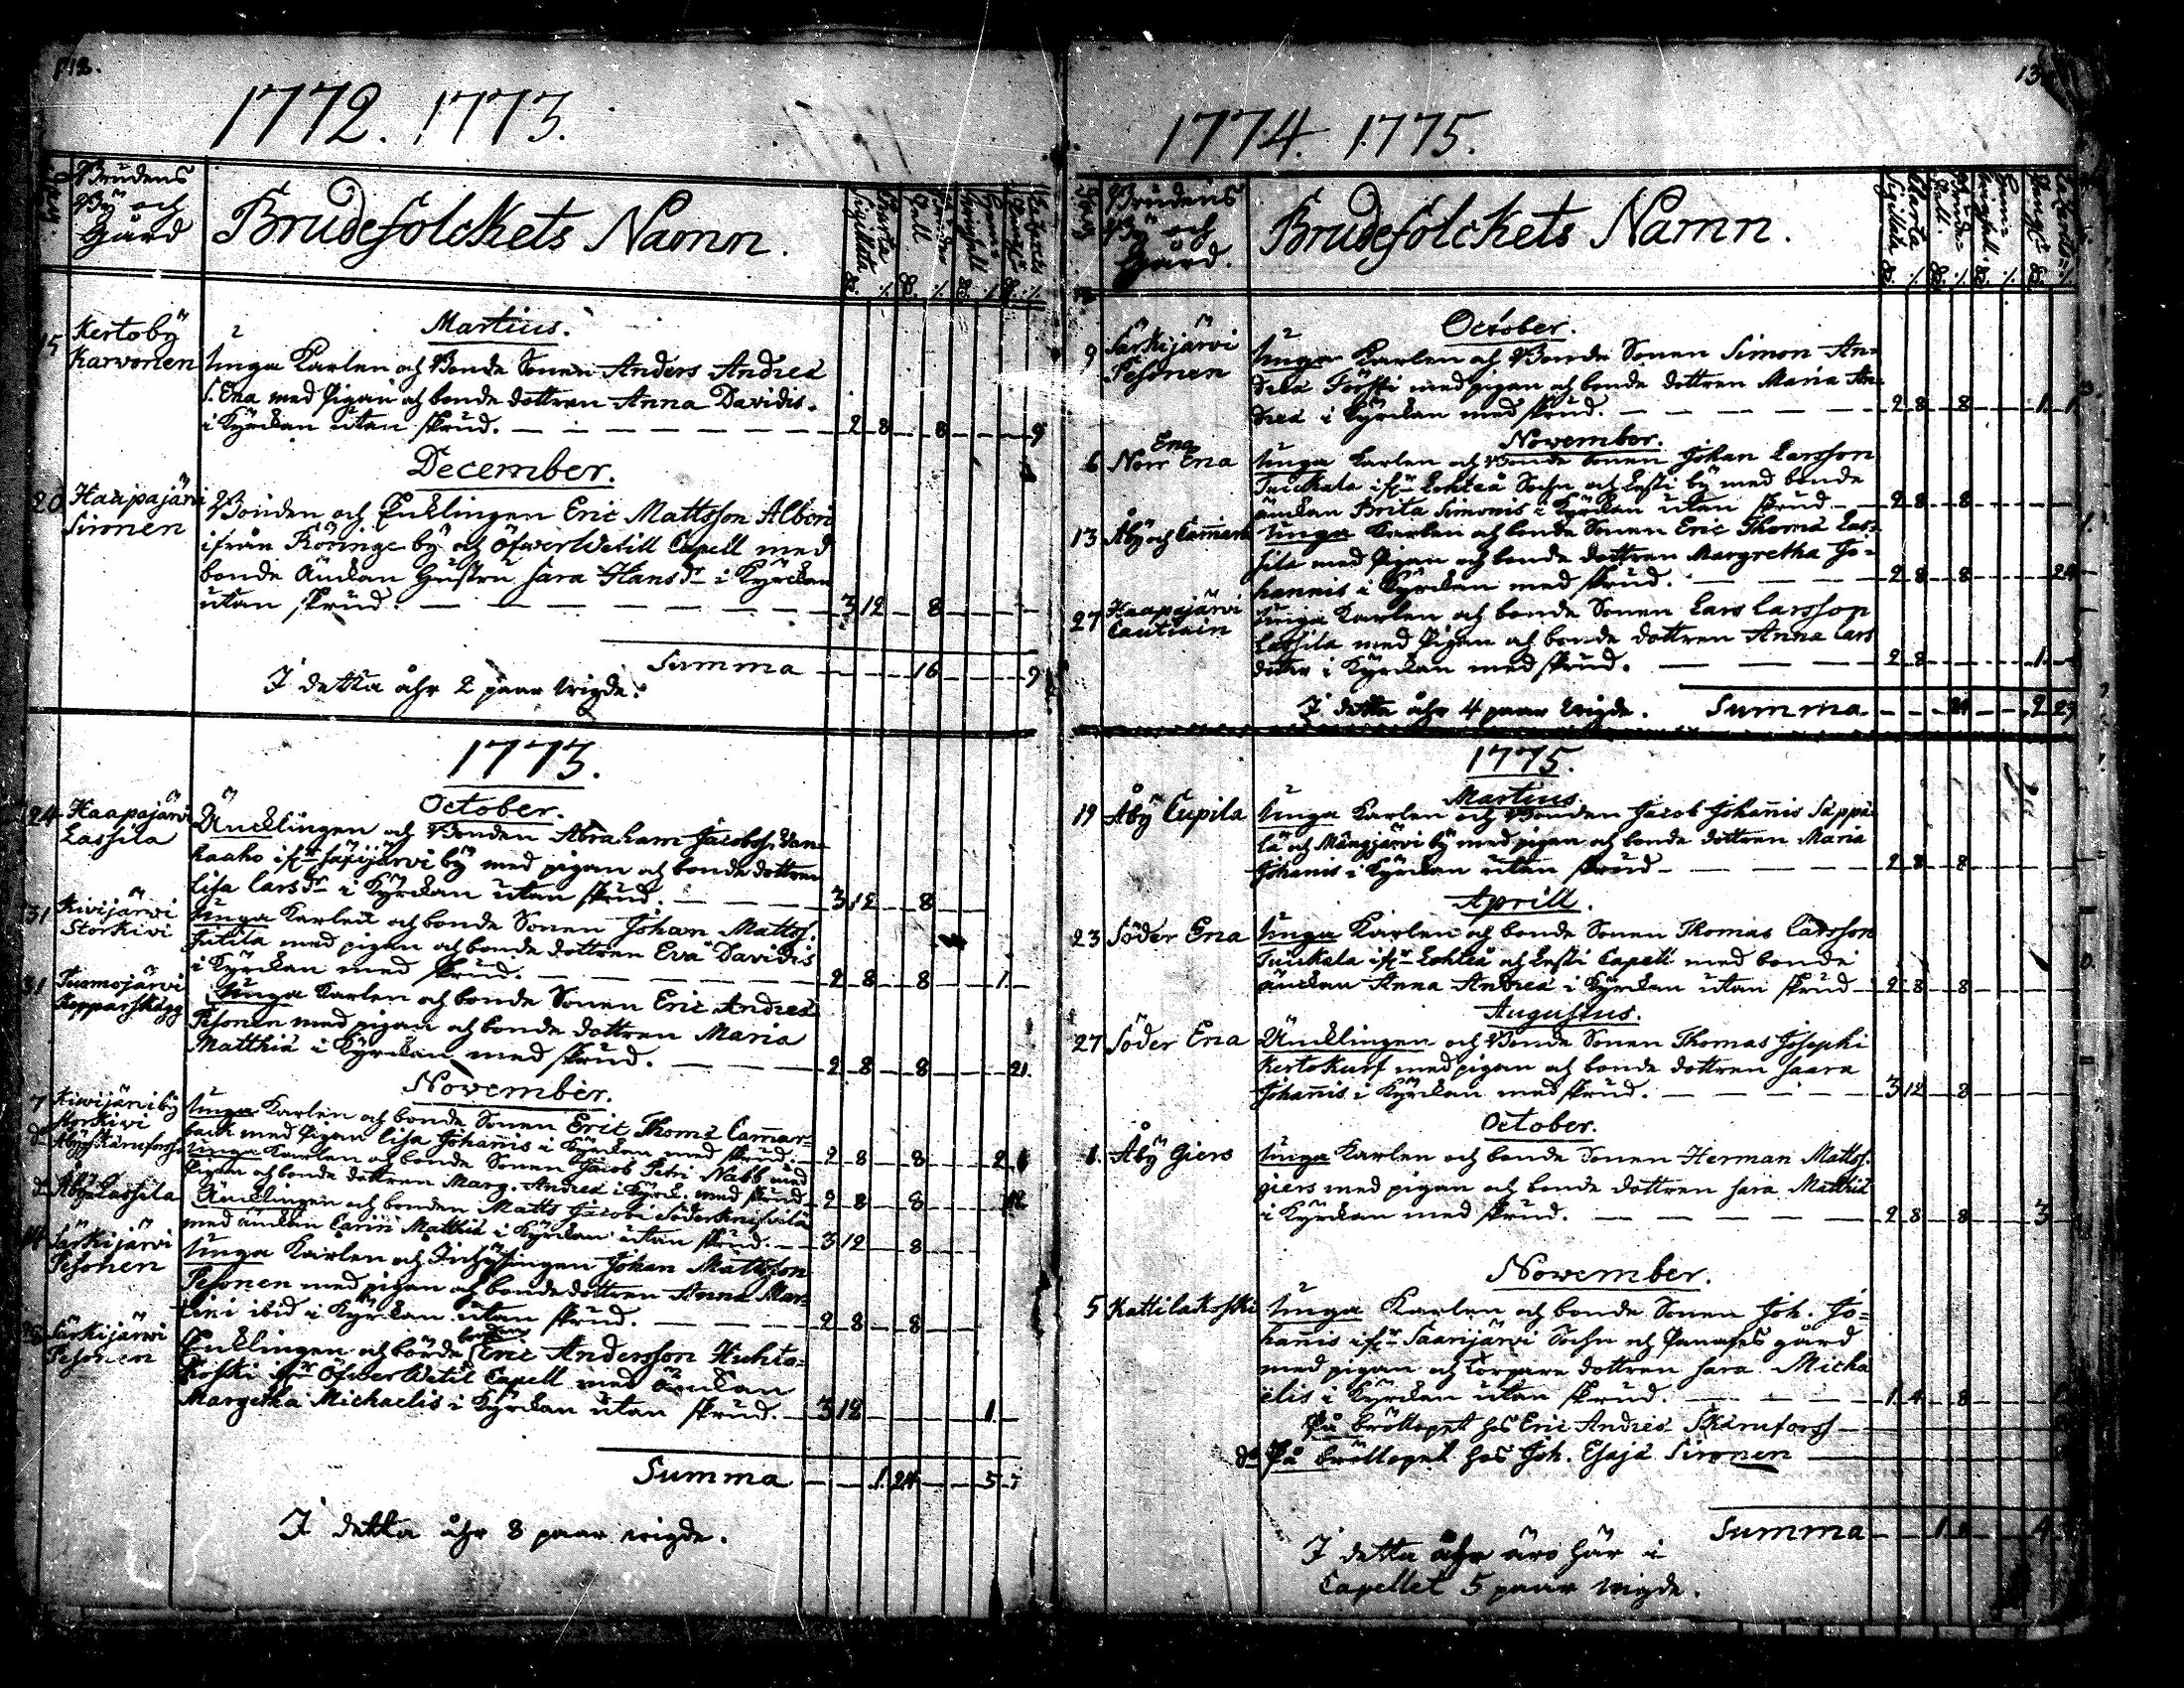 112.
1772. 1773.
Brudens
Bÿ och
Gård
Brudefolckets Namn.
Charta Sigillata
Martius.
15 Kertobÿ
Karvonen
Unga Karlen och Bonde Sonen Anders Andreæ
Ena med Pigan och bonde dottren Anna Davidis.
i Kÿrckan utan skrud. 2 8 8 9
December.
20 Haapajärvi
Sironen
Bonden och Encklingen Eric Mattsson Albon
ifrån Köringe bÿ och Öfwer Wetill Capell med
bonde Änckan Hustru Sara Hans dr i Kÿrckan
utan skrud. 3 12 8
Summa 16 9
I detta åhr 2 paar wigde.
1773.
October.
24 Haapajärvi
Lassila
Äncklingen och Bonden Abraham Jacobss.
kaaho ifr. bÿ med pigan och bonde dottren
Lisa Lars dr i Kÿrckan utan skrud. 3 12 8
31 Kivijärvi
Storkivi
Unga Karlen och bonde Sonen Johan Mattss.
Jutila med pigan och bonde dottren Eva Davidis
i Kÿrckan med skrud. 2 8 8 1
31 Tunmojärvi
Kopparskägg
Unga Karlen och bonde Sonen Eric Andreæ
Pesonen med pigan och bonde dottren Maria
Matthiæ i Kÿrckan med skrud. 2 8 8 21.
November.
7 Kivijärvi bÿ
Storkivi
Unga Karlen och bonde Sonen Eric Thomæ Cam̄ar-
back med Pigan Lisa Johan̄is i Kÿrckan med skrud. 2 8 8 2
do Åbÿ Skarnforss
Unga Karlen och bonde Sonen Jacob Petri Nabb med
Pigan och bonde dottren Marg. Andreæ i Kÿrck. med skrud 2 8 8 12
do Åbÿ Lassila
Äncklingen och bonden Matts Jacobi Söderknifvilä
med änckan Carin Matthiæ i Kÿrckan utan skrud. 3 12 8
14 Särkijärvi
Pesonen
Unga Karlen och Inhÿsingen Johan Mattsson
Pesonen med pigan och bonde dottren Anna Mar-
tini ibid i Kÿrckan utan skrud. 2 8 8
Särkijärvi
Pesonen
Encklingen och bonden Eric Andersson Huhta-
koski ifr Öfwer Wetil Capell med Änckan
Margetha Michaelis i Kÿrckan utan skrud. 3 12 1
Summa 1 24 5
I detta åhr 8 paar wigde.
13
1774. 1775.
Brudens
Bÿ och
Gård.
Brudefolckets Namn.
Charta Sigillata
October.
9 Särkijärvi
Pesonen
Unga Karlen och Bonde Sonen Simon An-
dreæ Förssti med pigan och bonde dottren Maria An-
dreæ i Kÿrckan med skrud. 2 8 8 1. 1
November.
6 Norr Ena
Ena
Unga Karlen och Bonde Sonen Johan Larsson
Tuuckala ifr Lohteå Sochn och Lesti bÿ med bonde
änckan Brita Simonis i Kÿrckan utan skrud 2 8 8
13 Åbÿ och Cam̄arb
Unga Karlen och bonde Sonen Eric Thomæ Las-
sila med Pigan och bonde dottren Margretha Jo-
hannis i Kÿrckan med skrud. 2 8 8 24
27 Haapajärvi
Cautiain
Unga Karlen och bonde Sonen Lars Larsson
Lassila med Pigan och bonde dottren Anna Lars
dotter i Kÿrckan med skrud. 2 8 1.
I detta åhr 4 paar wigde. Summa 24 2 29
1775.
Martius.
19 Åbÿ Cupila
Unga Karlen och Bonden Jacob Johan̄is Sappa-
la och Mängjärvi bÿ med pigan och bonde dottren Maria
Johan̄is i Kÿrckan utan skrud 2 8 8
Aprill.
23 Söder Ena
Unga Karlen och bonde Sonen Thomas Larsson
Tuuckala ifr Lohteå och Lesti Capell med bonde
änckan Anna Andreæ i Kÿrckan utan skrud 2 8 8
Augustus.
27 Söder Ena
Äncklingen och Bonde Sonen Thomas Josephi
Kertokurf med pigan och bonde dottren Saara
Johan̄is i Kÿrckan med skrud. 3 12 8
October.
1. Åbÿ Giers
Unga Karlen och bonde Sonen Herman Mattss.
giers med pigan och bonde dottren Sara Matthiæ
i Kÿrckan med skrud. 2 8 8 3
November.
5 Kattilakoski
Unga Karlen och bonde Sonen Joh. Jo-
han̄is ifr Saarijärvi Sochn och Panases gård
med pigan och torpare dottren Sara Micha
ëlis i Kÿrckan utan skrud. 1. 4 8
På bröllopet hos Eric Andreæ Skarnforss
do På bröllopet hos Joh. Esajæ Sironen
Summa 1 8 4
I detta åhr äro här i
Capellet 5 paar wigde.